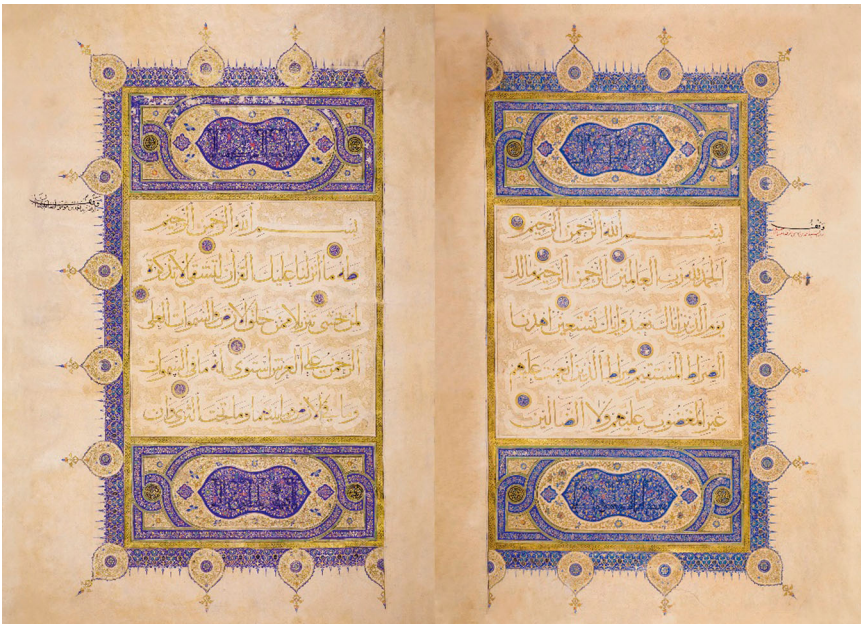 بسم الله الرحمن الرحيم
الحمد لله رب العالمين الرحمن الرحيم مالك
يوم الدين إياك نعبد وإياك نستعين اهدنا
الصراط المستقيم صراط الذين أنعمت عليهم
غير المغضوب عليهم ولا الضالين
بسم الله الرحمن الرحيم
طه ما أنزلنا عليك القرآن لتشقى إلا تذكرة
لمن يخشى تنزيلا ممن خلق الأرض والسموات العلى
الرحمن على العرش استوى له ما في السموات
وما في الأرض وما بينهما وما تحت الثرى وإن